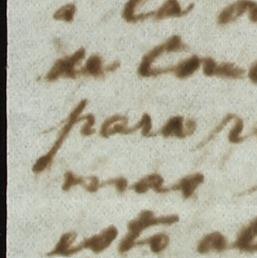 a la
de Con
para
mas
esto al